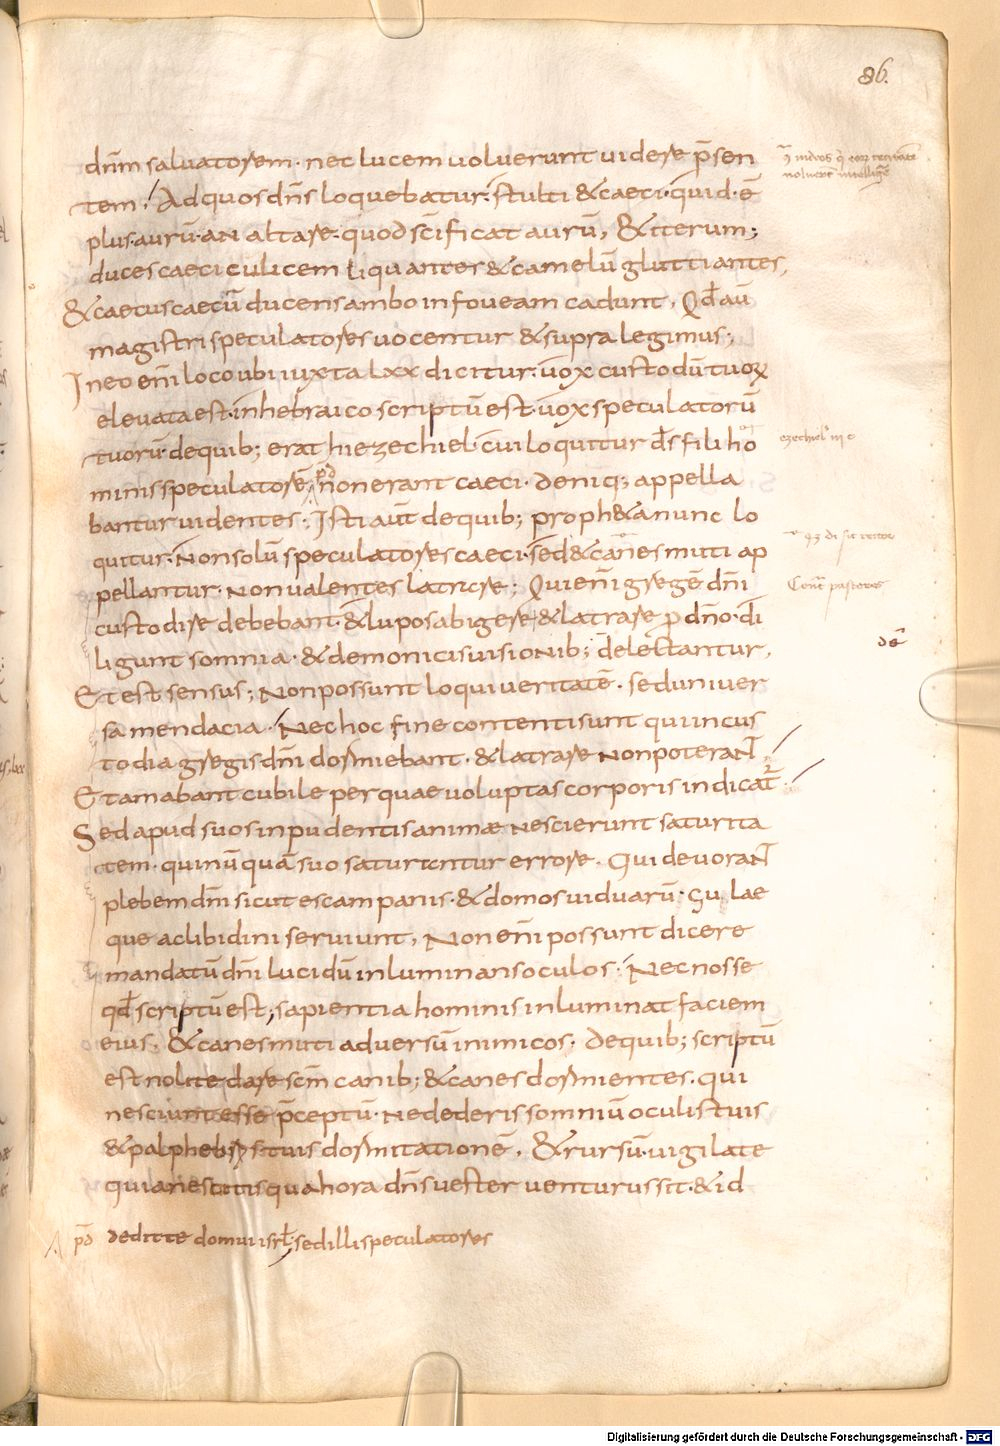 86.
dn̄m salvatorem · nec lucem voluerunt videre p̄sen
tem; Ad quos dn̄s loquebatur: stulti & caeci · quid · ē
plus · aurū · an altare · quod sc̄ificat aurū, & iterum;
duces caeci culicem liquantes & camelū gluttiantes,
& caecus caecū ducens ambo in foveam cadunt, Qd̄ aū
magistri speculatores vocentur & supra legimus;
In eo eni̅ loco ubi iuxta lxx dicitur · vox custodū tuoꝝ
elevata est · in hebraico scriptū est · vox speculatorū
tuorū · de quib; erat hiezechiel · cui loquitur d̄s fili ho
minis speculatorē p̄d non erant caeci · deniq; appella
bantur videntes · Isti aūt de quib; proph&a nunc lo
quitur · Non solū speculatores caeci · sed & canes muti ap
pellantur · Non valentes latrare; Qui eni̅ gregē dn̄i
custodire debebant · & lupos abigere & latrare p dn̄o · di
ligunt somnia · & demonicis visionib; delectantur,
Et est sensus; Non possunt loqui veritatē · sed univer
sa mendacia · Nec hoc fine contenti sunt qui in cus
todia gregis dn̄i dormiebant · & latrare non poterant,
Et amabant cubile per quae voluptas corporis indicat̄
Sed apud suos inpudentis animæ nescierunt saturita
tem · qui nūquā suo saturentur errore · Qui devorant
plebem dn̄i sicut escam panis · & domos viduarū · Gulae
que ac libidini serviunt, Non eni̅ possunt dicere
mandatū dn̄i lucidū inluminans oculos · Nec nosse
qd̄ scriptū est, sapientia hominis inluminat faciem
eius, & canes muti adversū inimicos · de quib; scriptū
est nolite dare sc̄m canib; & canes dormientes · qui
nesciunt esse p̄ceptū · ne dederis somniū oculis tuis
& palphebris tuis dormitationē, & rursū · vigilate
quia nescitis qua hora dn̄s vester venturus sit · & id
p̄d dedite domui isrl̄; sed illi speculatores
ezechiel iii c
Cont̄ pastores
dē
Digitalisierung gefördert durch die Deutsche Forschungsgemeinschaft - DFG